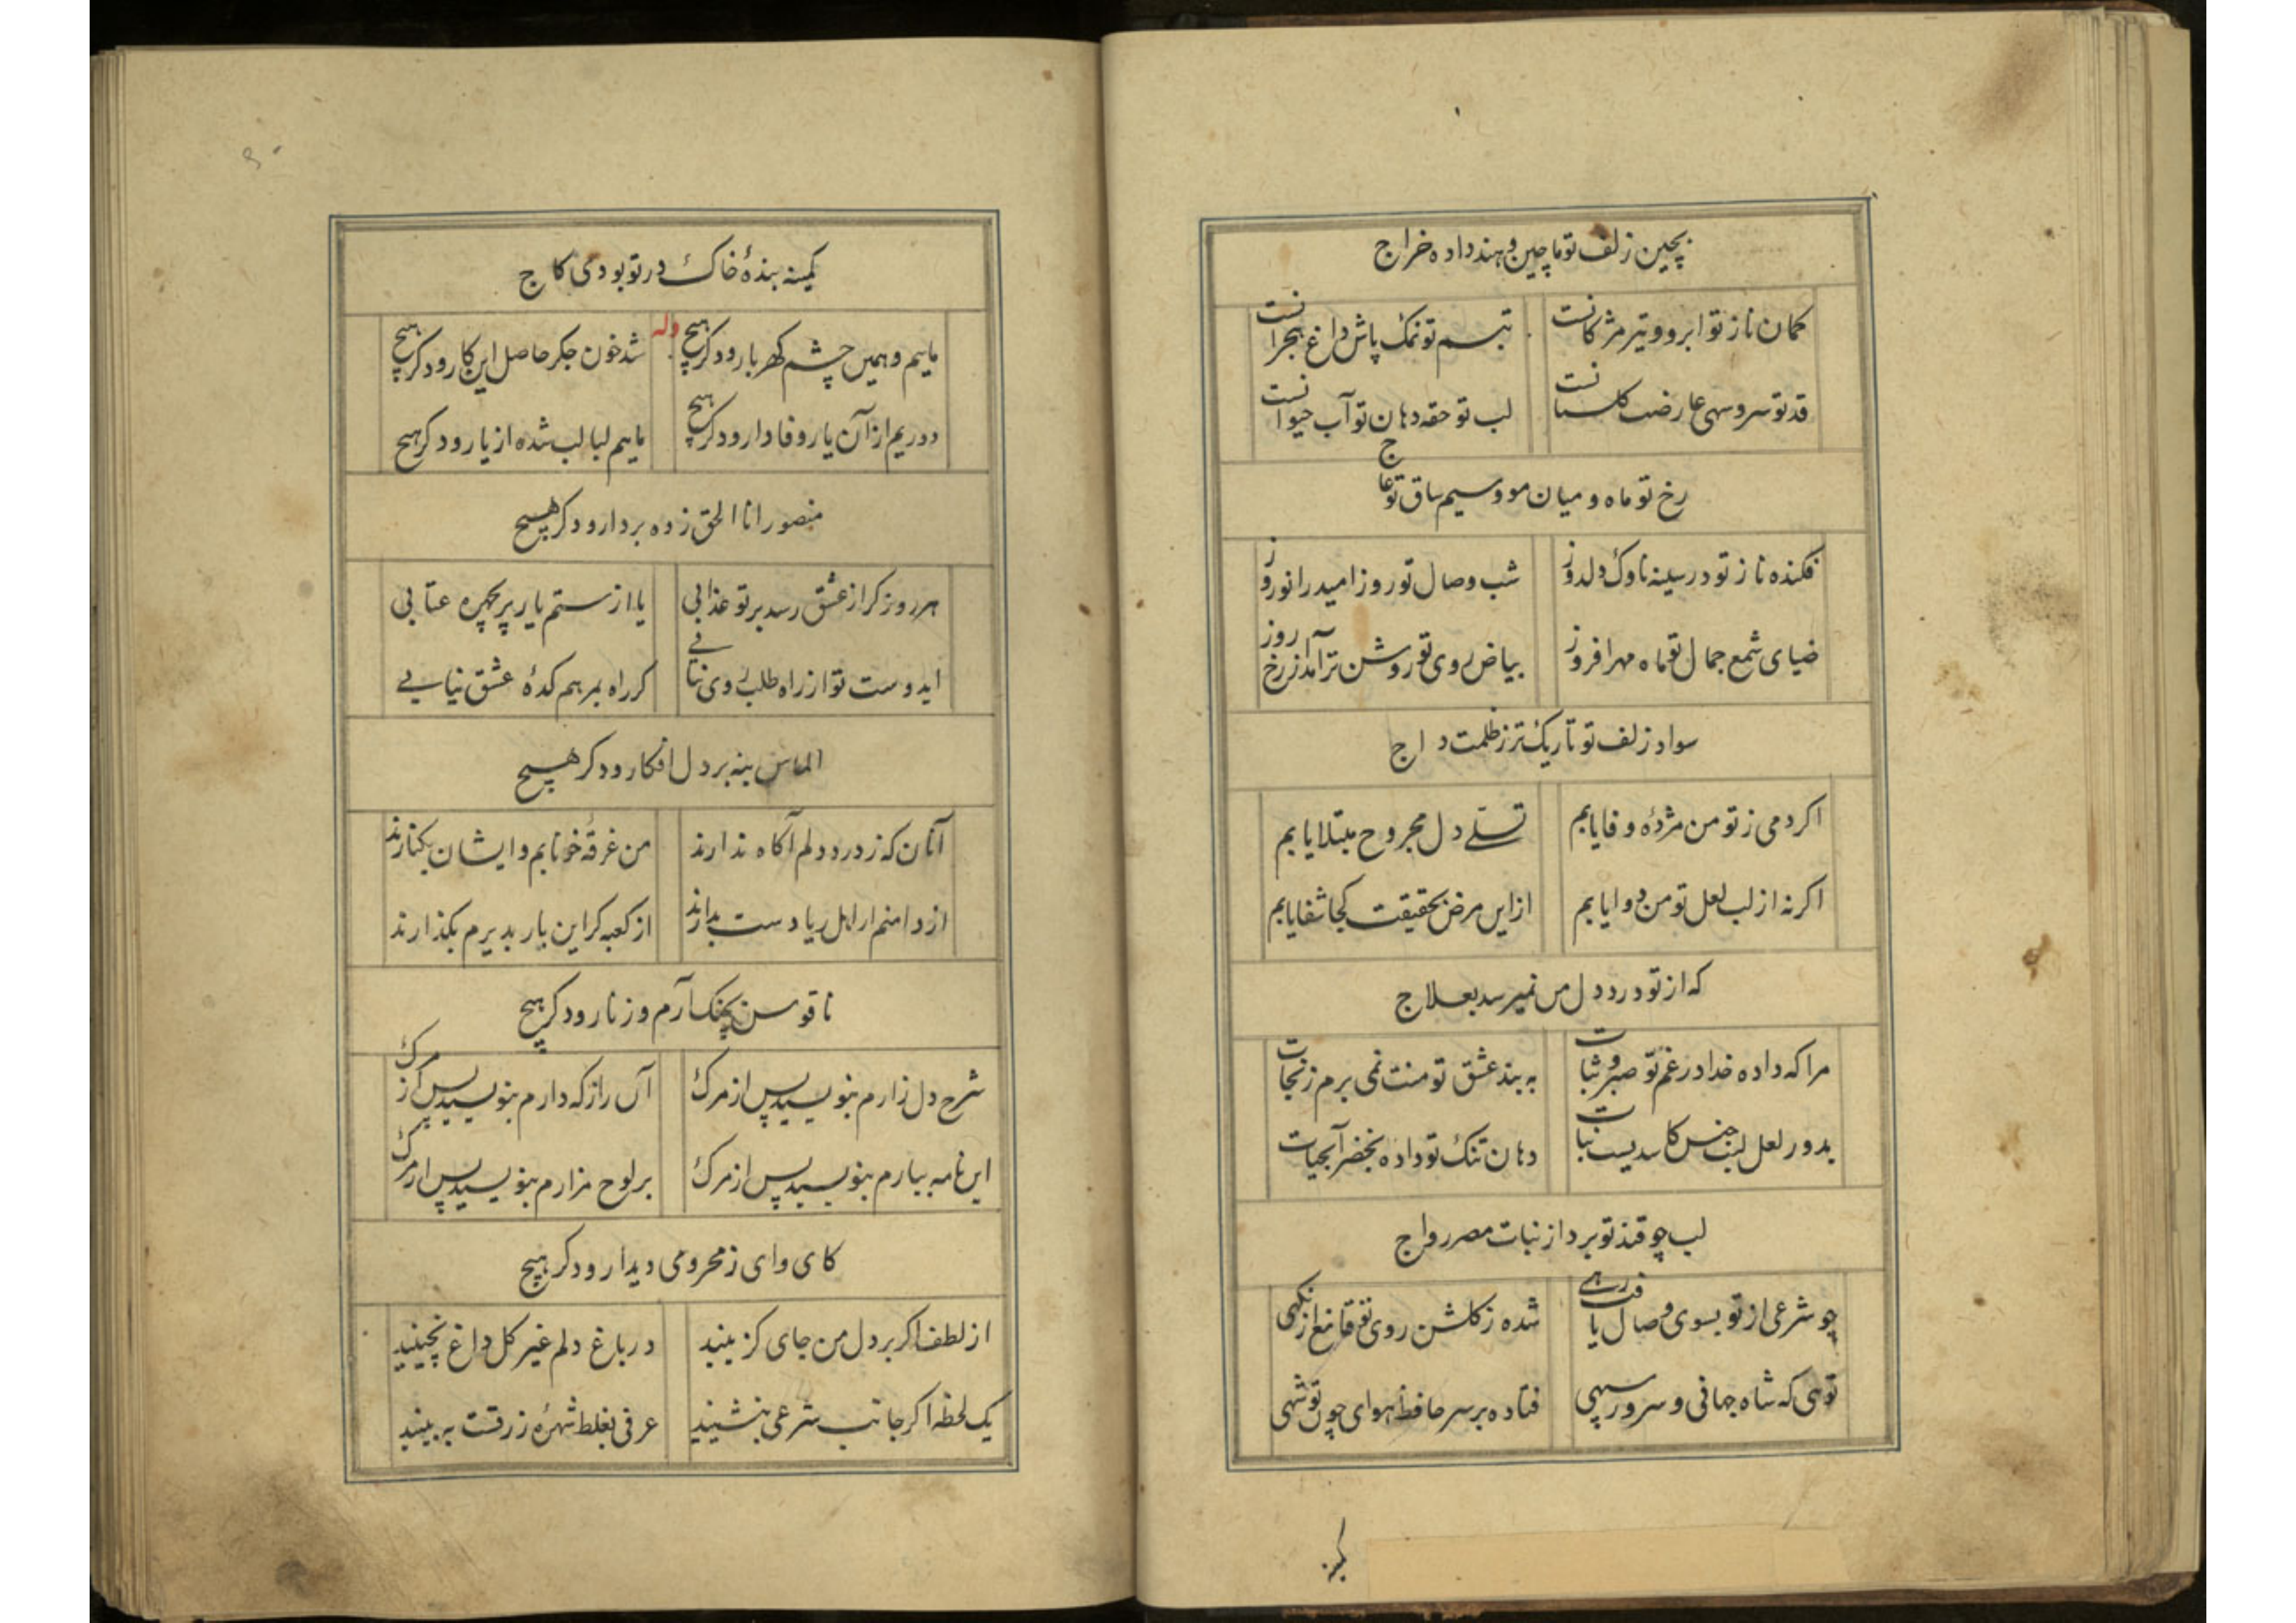 بچین زلف تو ماچین و هند داده خراج
کمان ناز تو ابرو و تیر مژکانست تبسم تو نمک پاش داغ هجرانست
قد تو سرو سهی عارضت کلستانست لب تو حقه دهان تو آب حیوانست
رخ تو ماه و میان مو و سیم ساق تو عاج
فکنده ناز تو در سینه ناوک دلدوز شب وصال تو روز امید را نوروز
ضیای شمع جمال تو ماه مهر افروز بیاض روی تو روشن تر آمد از رخ روز
سواد زلف تو تاریک تر ز ظلمت داج
اکر دمی ز تو من مژدهٔ وفا یابم تسلّے دل مجروح مبتلا یابم
اکر نه از لب لعل تو من دوا یابم از این مرض بحقیقت کجا شفا یابم
که از تو درد دل من نمیرسد بعلاج
مرا که داده خدا در غم تو صبر و ثبات به بند عشق تو منت نمی برم ز نجات
بدور لعل لبت جنس کاسدیست نبات دهان تنک تو داده بخضر آبحیات
لب چو قند تو برد از نبات مصر رواج
چو شرعی از تو بسوی وصال یافت رہے شده ز کلشن روی تو قانع از نکهی
توئی که شاه جهانی و سرور سپهی فتاده بر سر حافظ هوای چون تو شهی
کمینه
کمینه بندهٔ خاک در تو بودی کاج
وله
مایم و همین چشم کهربار و دکر هیچ شد خون جکر حاصل این کار و دکر هیچ
دوریم از آن یار وفادار و دکر هیچ مایم لبالب شده از یار و دکر هیچ
منصور انا الحق زده بر دار و دکر هیچ
هر روز کر از عشق رسد بر تو عذابی یا از ستم یار پریچهره عتابی
ایدوست تو از راه طلب روی نتابے کر راه بمرهم کدهٔ عشق نیابے
الماس بنه بر دل افکار و دکر هیچ
آنان که ز درد دلم آکاه ندارند من غرقهٔ خونابم و ایشان بکنارند
از دامنم ار اهل ریا دست بدارند از کعبه کر این بار بدیرم بکذارند
ناقوس بچنک آرم و زنار و دکر هیچ
شرح دل زارم بنویسید پس از مرک آن راز که دارم بنویسید پس از مرک
این نامه بیارم بنویسید پس از مرک بر لوح مزارم بنویسید پس از مرک
کای وای ز محرومی دیدار و دکر هیچ
از لطف اکر بر دل من جای کزینید در باغ دلم غیر کل داغ نچینید
یک لحظه اکر جانب شرعی بنشینید عرفی بغلط شهره زرقست به بینید